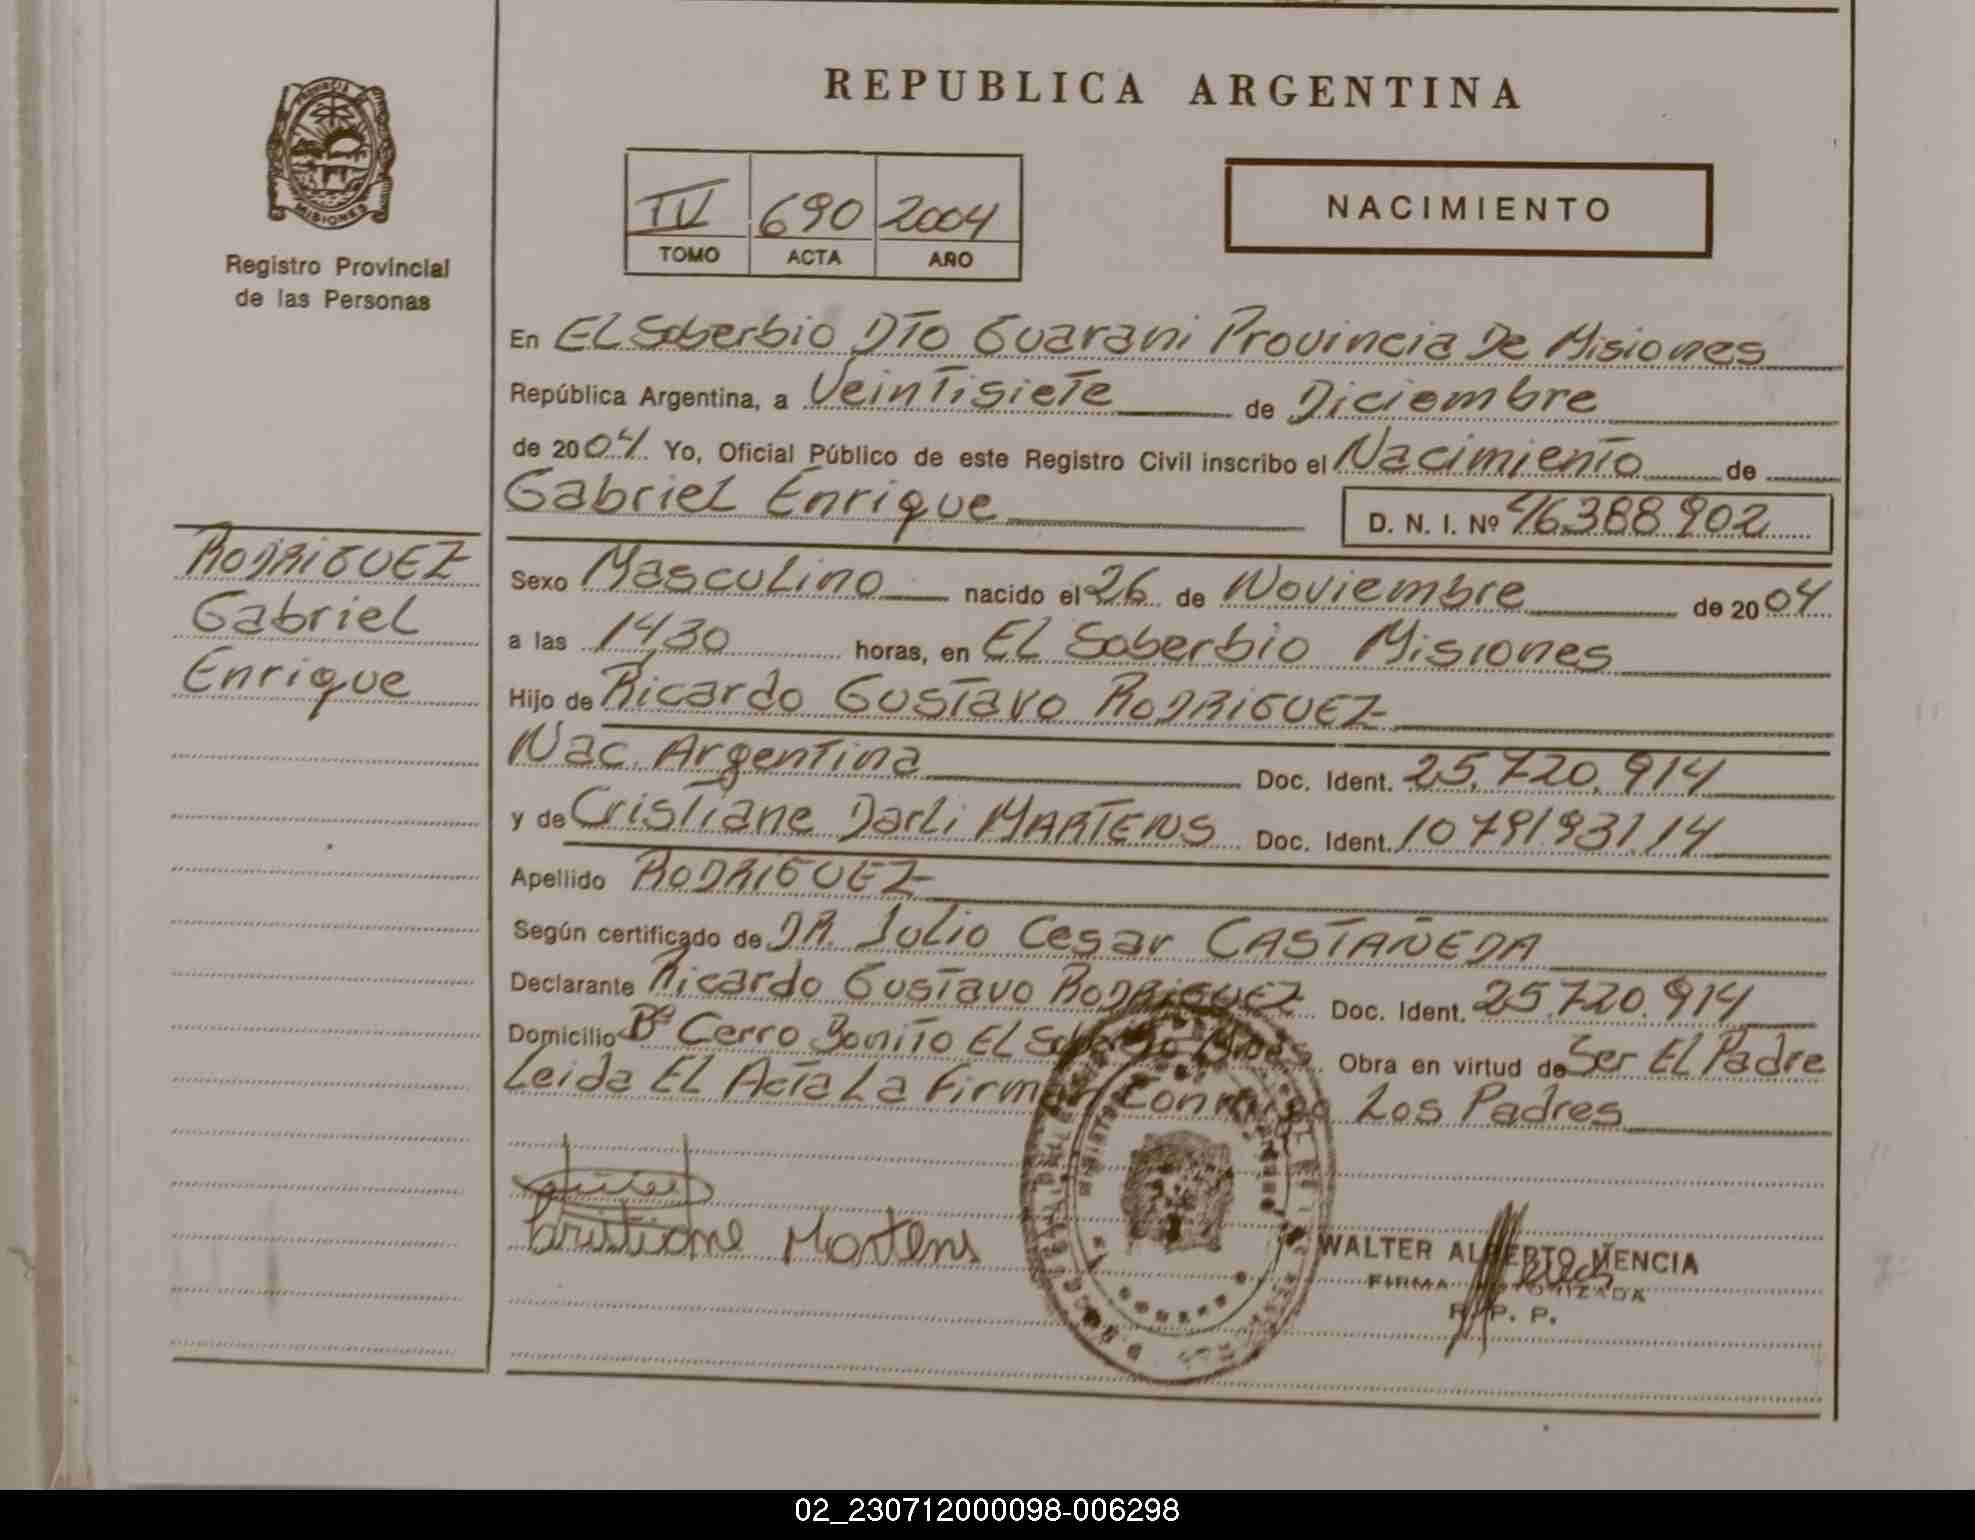 REPUBLICA ARGENTINA
PROVINCIA
MISIONES
Registro Provincial
de las Personas
IV 690 2004
TOMO ACTA AÑO
NACIMIENTO
En El Soberbio Dto Guarani Provincia De Misiones
República Argentina, a Veintisiete de Diciembre
de 2004 Yo, Oficial Público de este Registro Civil inscribo el Nacimiento de
Gabriel Enrique D. N. I. Nº 46.388.902
RODRIGUEZ
Gabriel
Enrique
Sexo Masculino nacido el 26 de Noviembre de 2004
a las 14,30 horas, en El Soberbio Misiones
Hijo de Ricardo Gustavo RODRIGUEZ
Nac. Argentina Doc. Ident. 25.720.914
y de Cristiane Darli MARTENS Doc. Ident. 1079193114
Apellido RODRIGUEZ
Según certificado de DR. Julio Cesar CASTAÑEDA
Declarante Ricardo Gustavo RODRIGUEZ Doc. Ident. 25.720.914
Domicilio Bº Cerro Bonito El Soberbio Mnes Obra en virtud de Ser El Padre
Leida El Acta La Firman Conmigo Los Padres
Cristiane Martens
WALTER ALBERTO MENCIA
FIRMA AUTORIZADA
R. P. P.
02_230712000098-006298